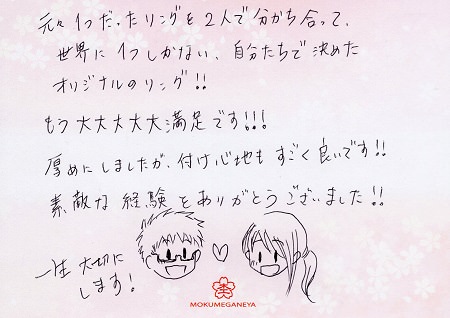 元々1つだったリングを2人で分かち合って、
世界に1つしかない、自分たちで決めた
オリジナルのリング!!
もう大大大大大満足です!!!
厚めにしましたが、付け心地もすごく良いです!!
素敵な経験をありがとうございました!!
一生大切に
します!
MOKUMEGANEYA